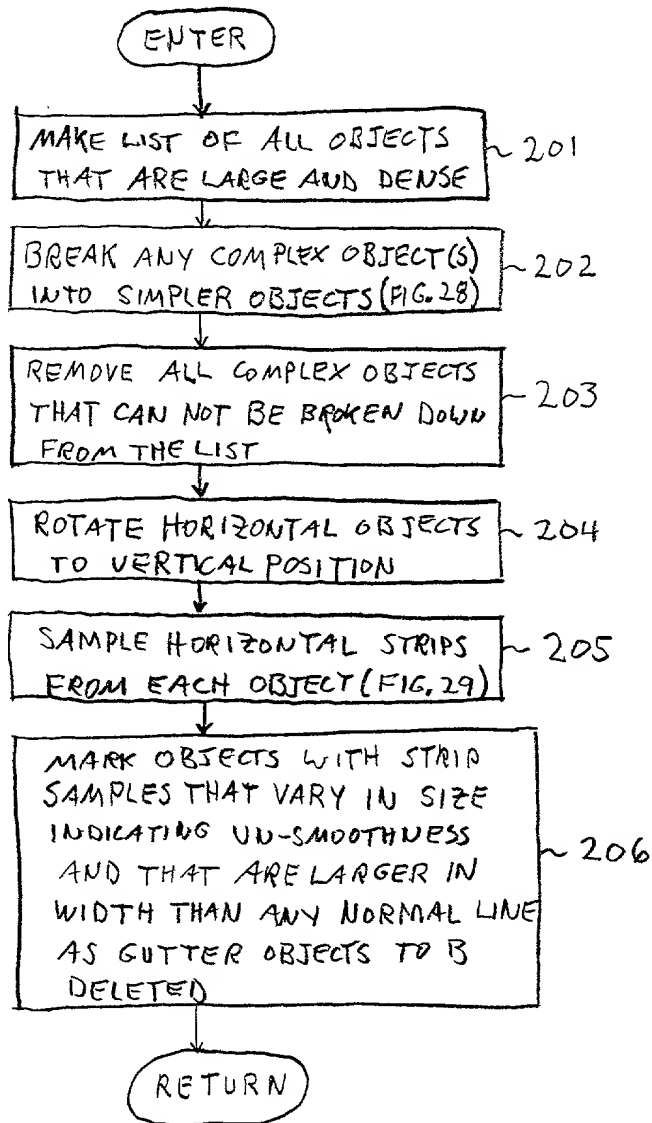 ENTER
MAKE LIST OF ALL OBJECTS
THAT ARE LARGE AND DENSE
201
BREAK ANY COMPLEX OBJECT(S)
INTO SIMPLER OBJECTS (FIG. 28)
202
REMOVE ALL COMPLEX OBJECTS
THAT CAN NOT BE BROKEN DOWN
FROM THE LIST
203
ROTATE HORIZONTAL OBJECTS
TO VERTICAL POSITION
204
SAMPLE HORIZONTAL STRIPS
FROM EACH OBJECT (FIG. 29)
205
MARK OBJECTS WITH STRIP
SAMPLES THAT VARY IN SIZE
INDICATING UN-SMOOTHNESS
AND THAT ARE LARGER IN
WIDTH THAN ANY NORMAL LINE
AS GUTTER OBJECTS TO B
DELETED
206
RETURN